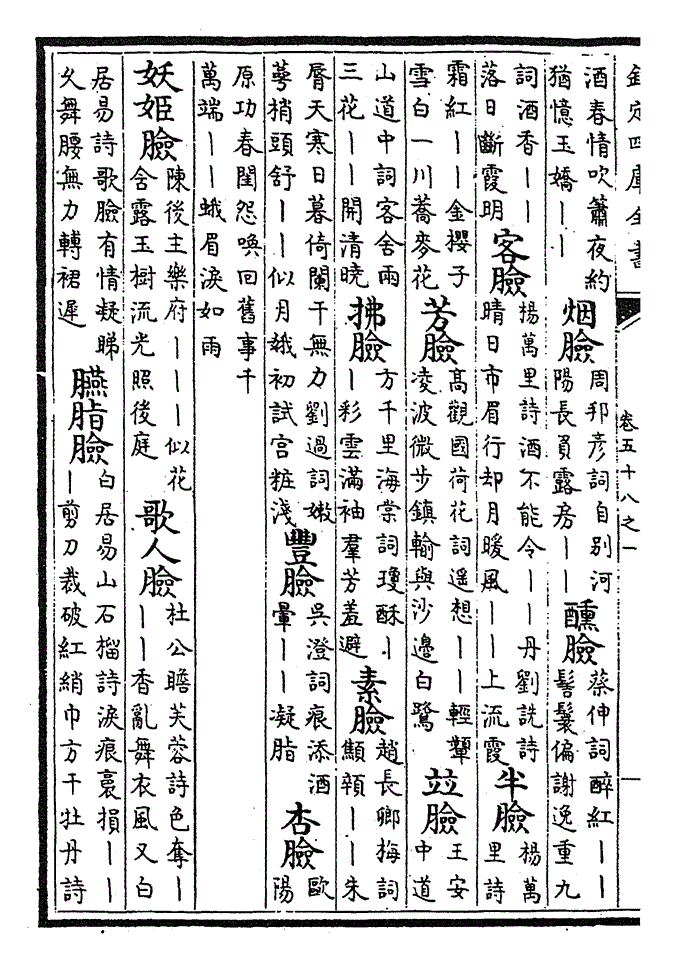 欽定四庫全書
卷五十八之一
酒春情吹簫夜約
猶憶玉嬌丨丨
烟臉
周邦彥詞自别河
陽長負露房丨丨
醺臉
蔡伸詞醉紅丨丨
髻鬟偏謝逸重九
詞酒香丨丨
落日斷霞明
客臉
楊萬里詩酒不能令丨丨丹劉詵詩
晴日市眉行却月暖風丨丨上流霞
半臉
楊萬
里詩
霜紅丨丨金櫻子
雪白一川蕎麥花
芳臉
高觀國荷花詞遥想丨丨輕顰
凌波微步鎮輸與沙邊白鷺
竝臉
王安
中道
山道中詞客舍雨
三花丨丨開清曉
拂臉
方千里海棠詞瓊酥丨
丨彩雲滿袖羣芳羞避
素臉
趙長卿梅詞
顦顇丨丨朱
脣天寒日暮倚闌干無力劉過詞嫩
萼梢頭舒丨丨似月娥初試宫粧淺
豐臉
吳澄詞痕添酒
暈丨丨凝脂
杏臉
歐
陽
原功春閨怨喚回舊事千
萬端丨丨蛾眉淚如雨
妖姬臉
陳後主樂府丨丨丨似花
含露玉樹流光照後庭
歌人臉
杜公瞻芙蓉詩色奪丨
丨丨香亂舞衣風又白
居易詩歌臉有情凝睇
久舞腰無力轉裙遲
臙脂臉
白居易山石榴詩淚痕裛損丨丨
丨剪刀裁破紅綃巾方干牡丹詩